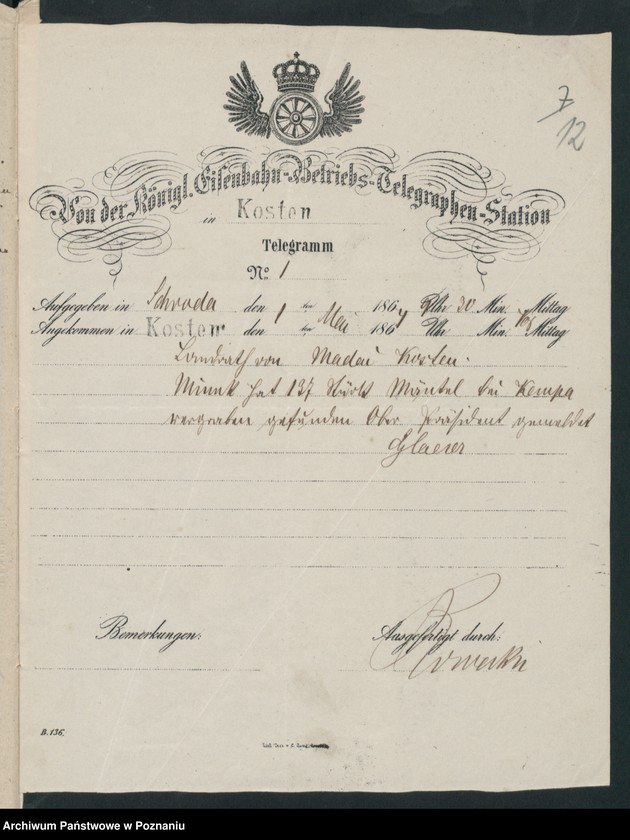 7
12
Von der Königl. Eisenbahn-Betriebs-Telegraphen-Station
in Kosten
Telegramm
No. 1
Aufgegeben in Schroda den 1 ten Mai 1864 Uhr 30 Min. Mittag
Angekommen in Kosten den ten Mai 1864 Uhr Min. Mittag
Landrath von Madai Kosten.
hat 137 Stück Mäntel bei Kempa
vergraben gefunden Ober Präsident gemeldet
Glaeser
Bemerkungen:
Ausgefertigt durch:
B. 136.
Archiwum Państwowe w Poznaniu